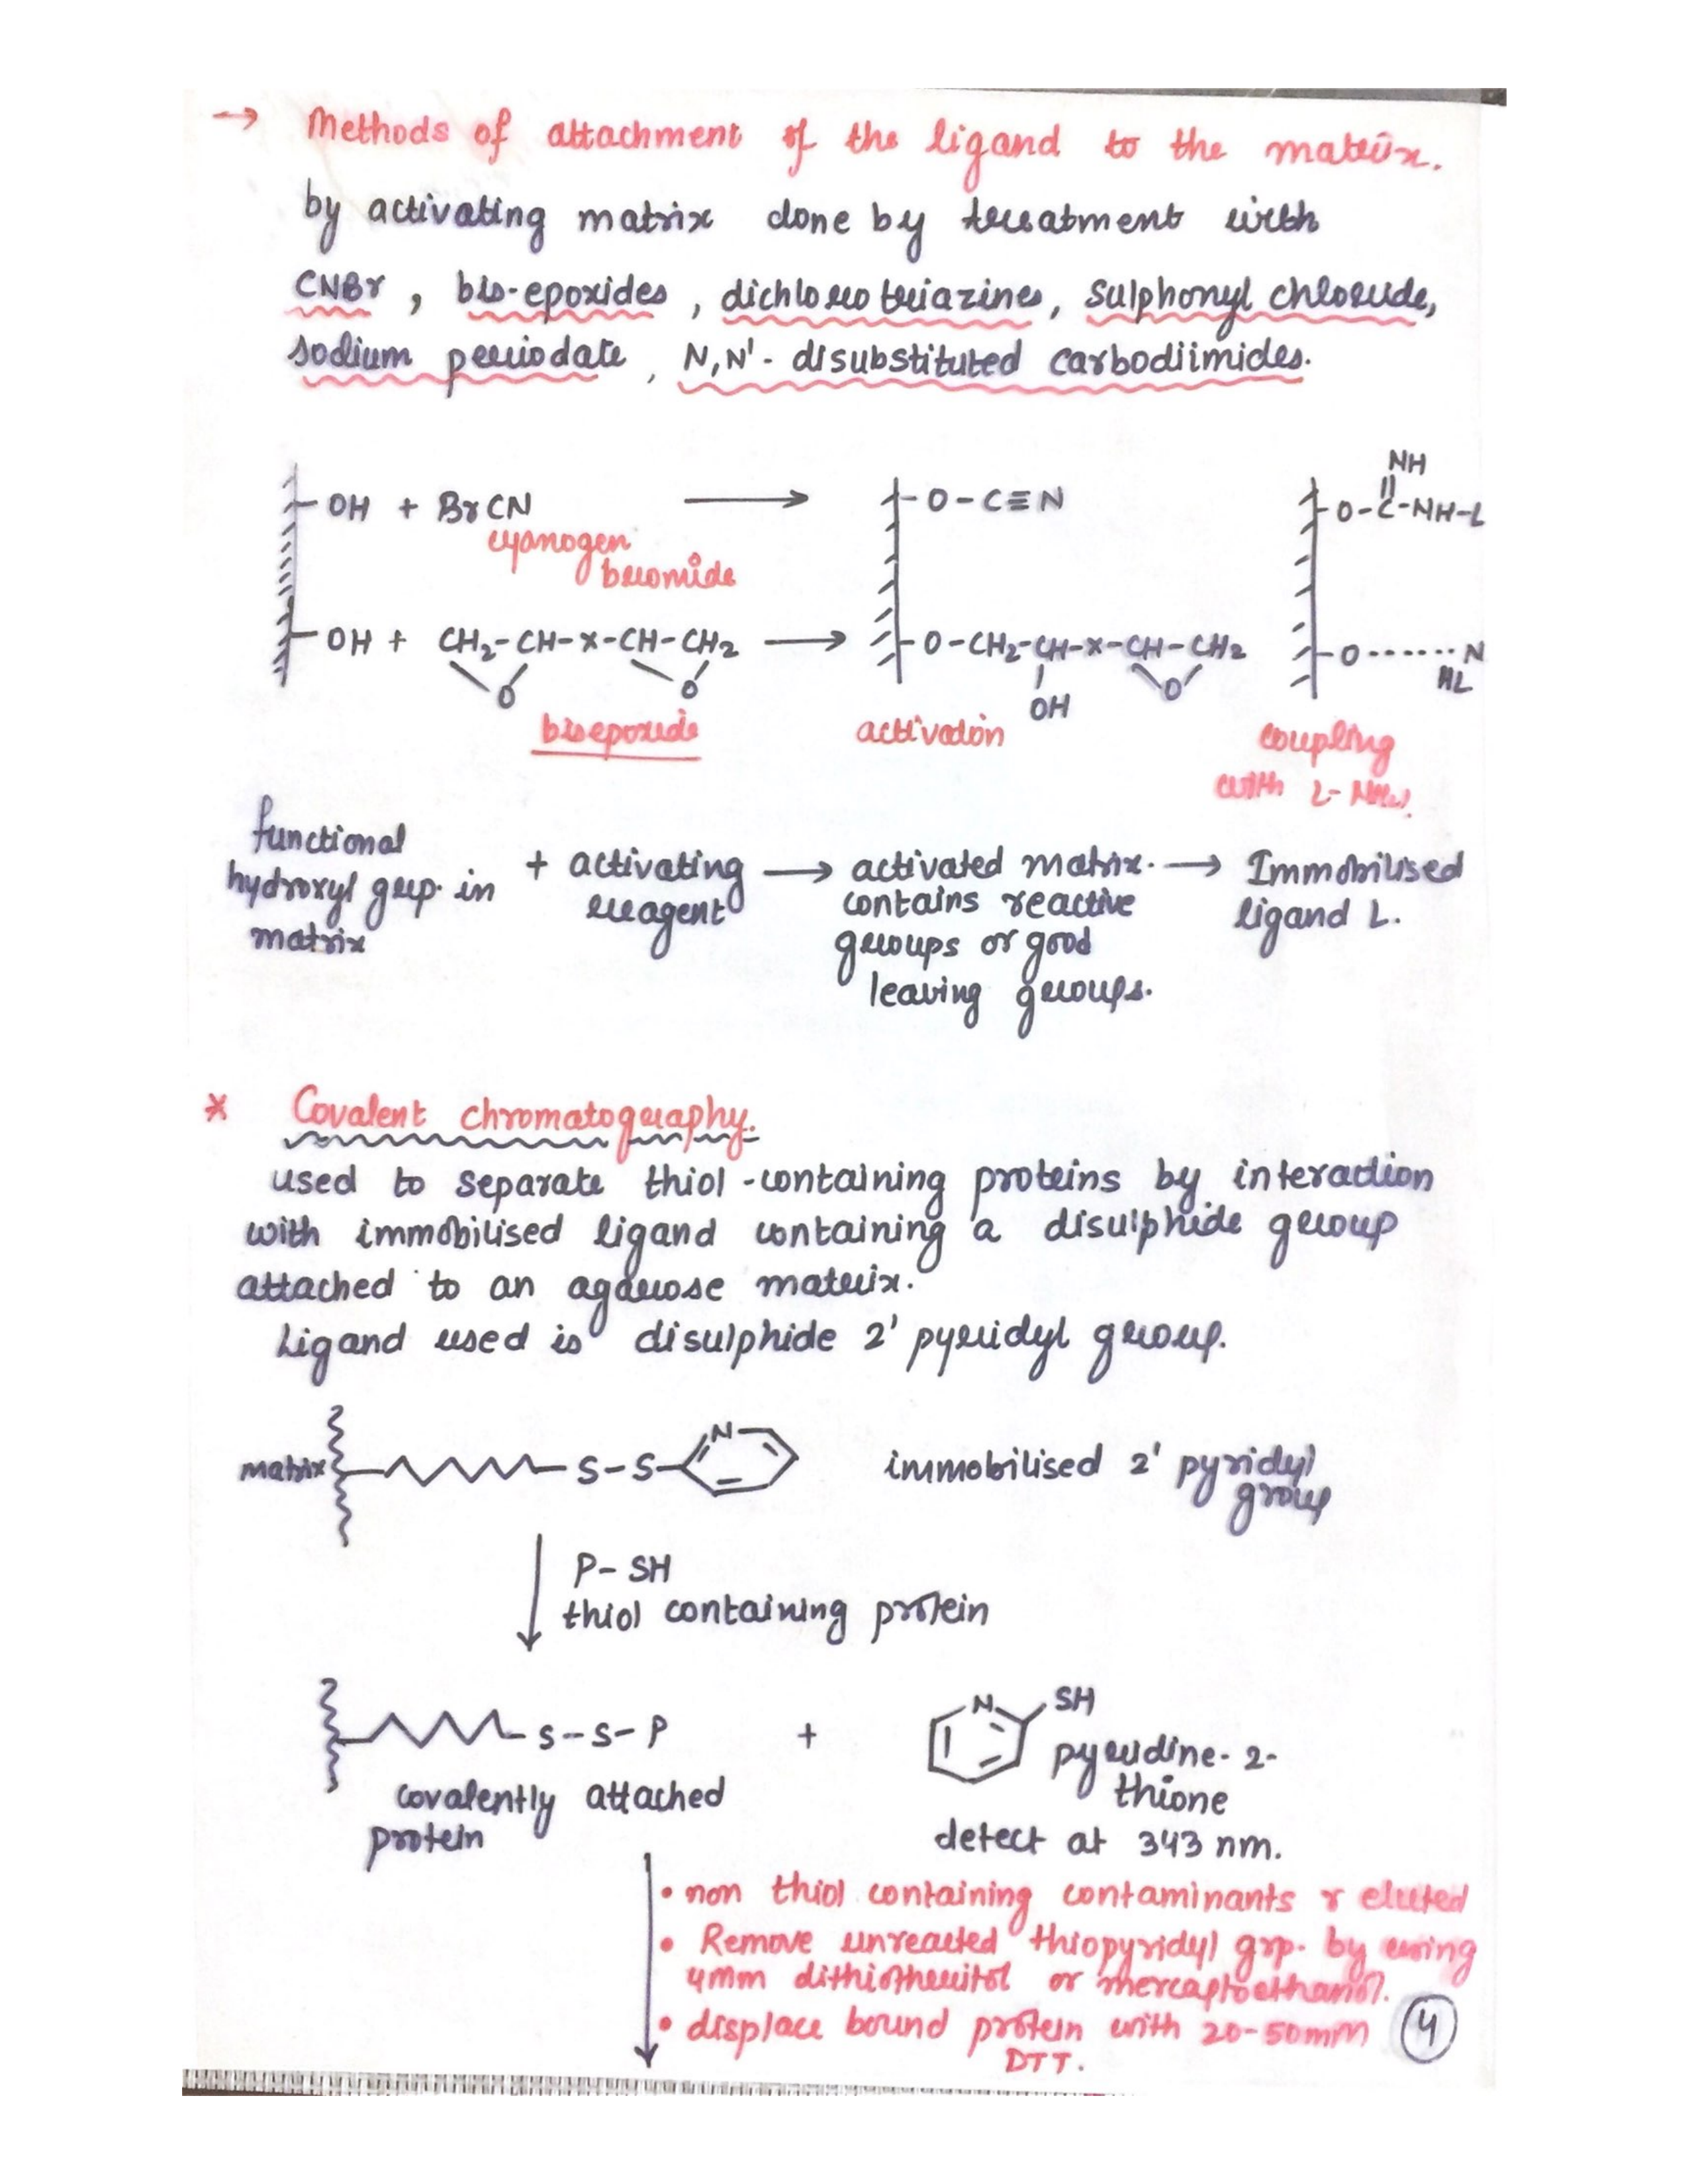 → Methods of attachment of the ligand to the matrix.
by activating matrix done by treatment with
CNBr, bis-epoxides, dichlorotriazines, sulphonyl chloride,
sodium periodate, N,N'-disubstituted carbodiimides.
NH
OH + BrCN → O-C≡N O-C-NH-L
cyanogen
bromide
OH + CH2-CH-x-CH-CH2 → O-CH2-CH-x-CH-CH2 O------N
O O OH O HL
bisepoxide activation coupling
with L-
functional
hydroxyl grp. in + activating → activated matrix. → Immobilised
matrix reagent contains reactive ligand L.
groups or good
leaving groups.
* Covalent chromatography.
used to separate thiol-containing proteins by interaction
with immobilised ligand containing a disulphide group
attached to an agarose matrix.
Ligand used is disulphide 2' pyridyl group.
matrix S-S- N immobilised 2' pyridyl
group
P-SH
thiol containing protein
S-S-P + N SH
pyridine-2-
thione
covalently attached
protein
detect at 343 nm.
• non thiol containing contaminants r eluted
• Remove unreacted thiopyridyl grp. by using
4mm dithiotheritol or mercaptoethanol.
• displace bound protein with 20-50mm
DTT.
4